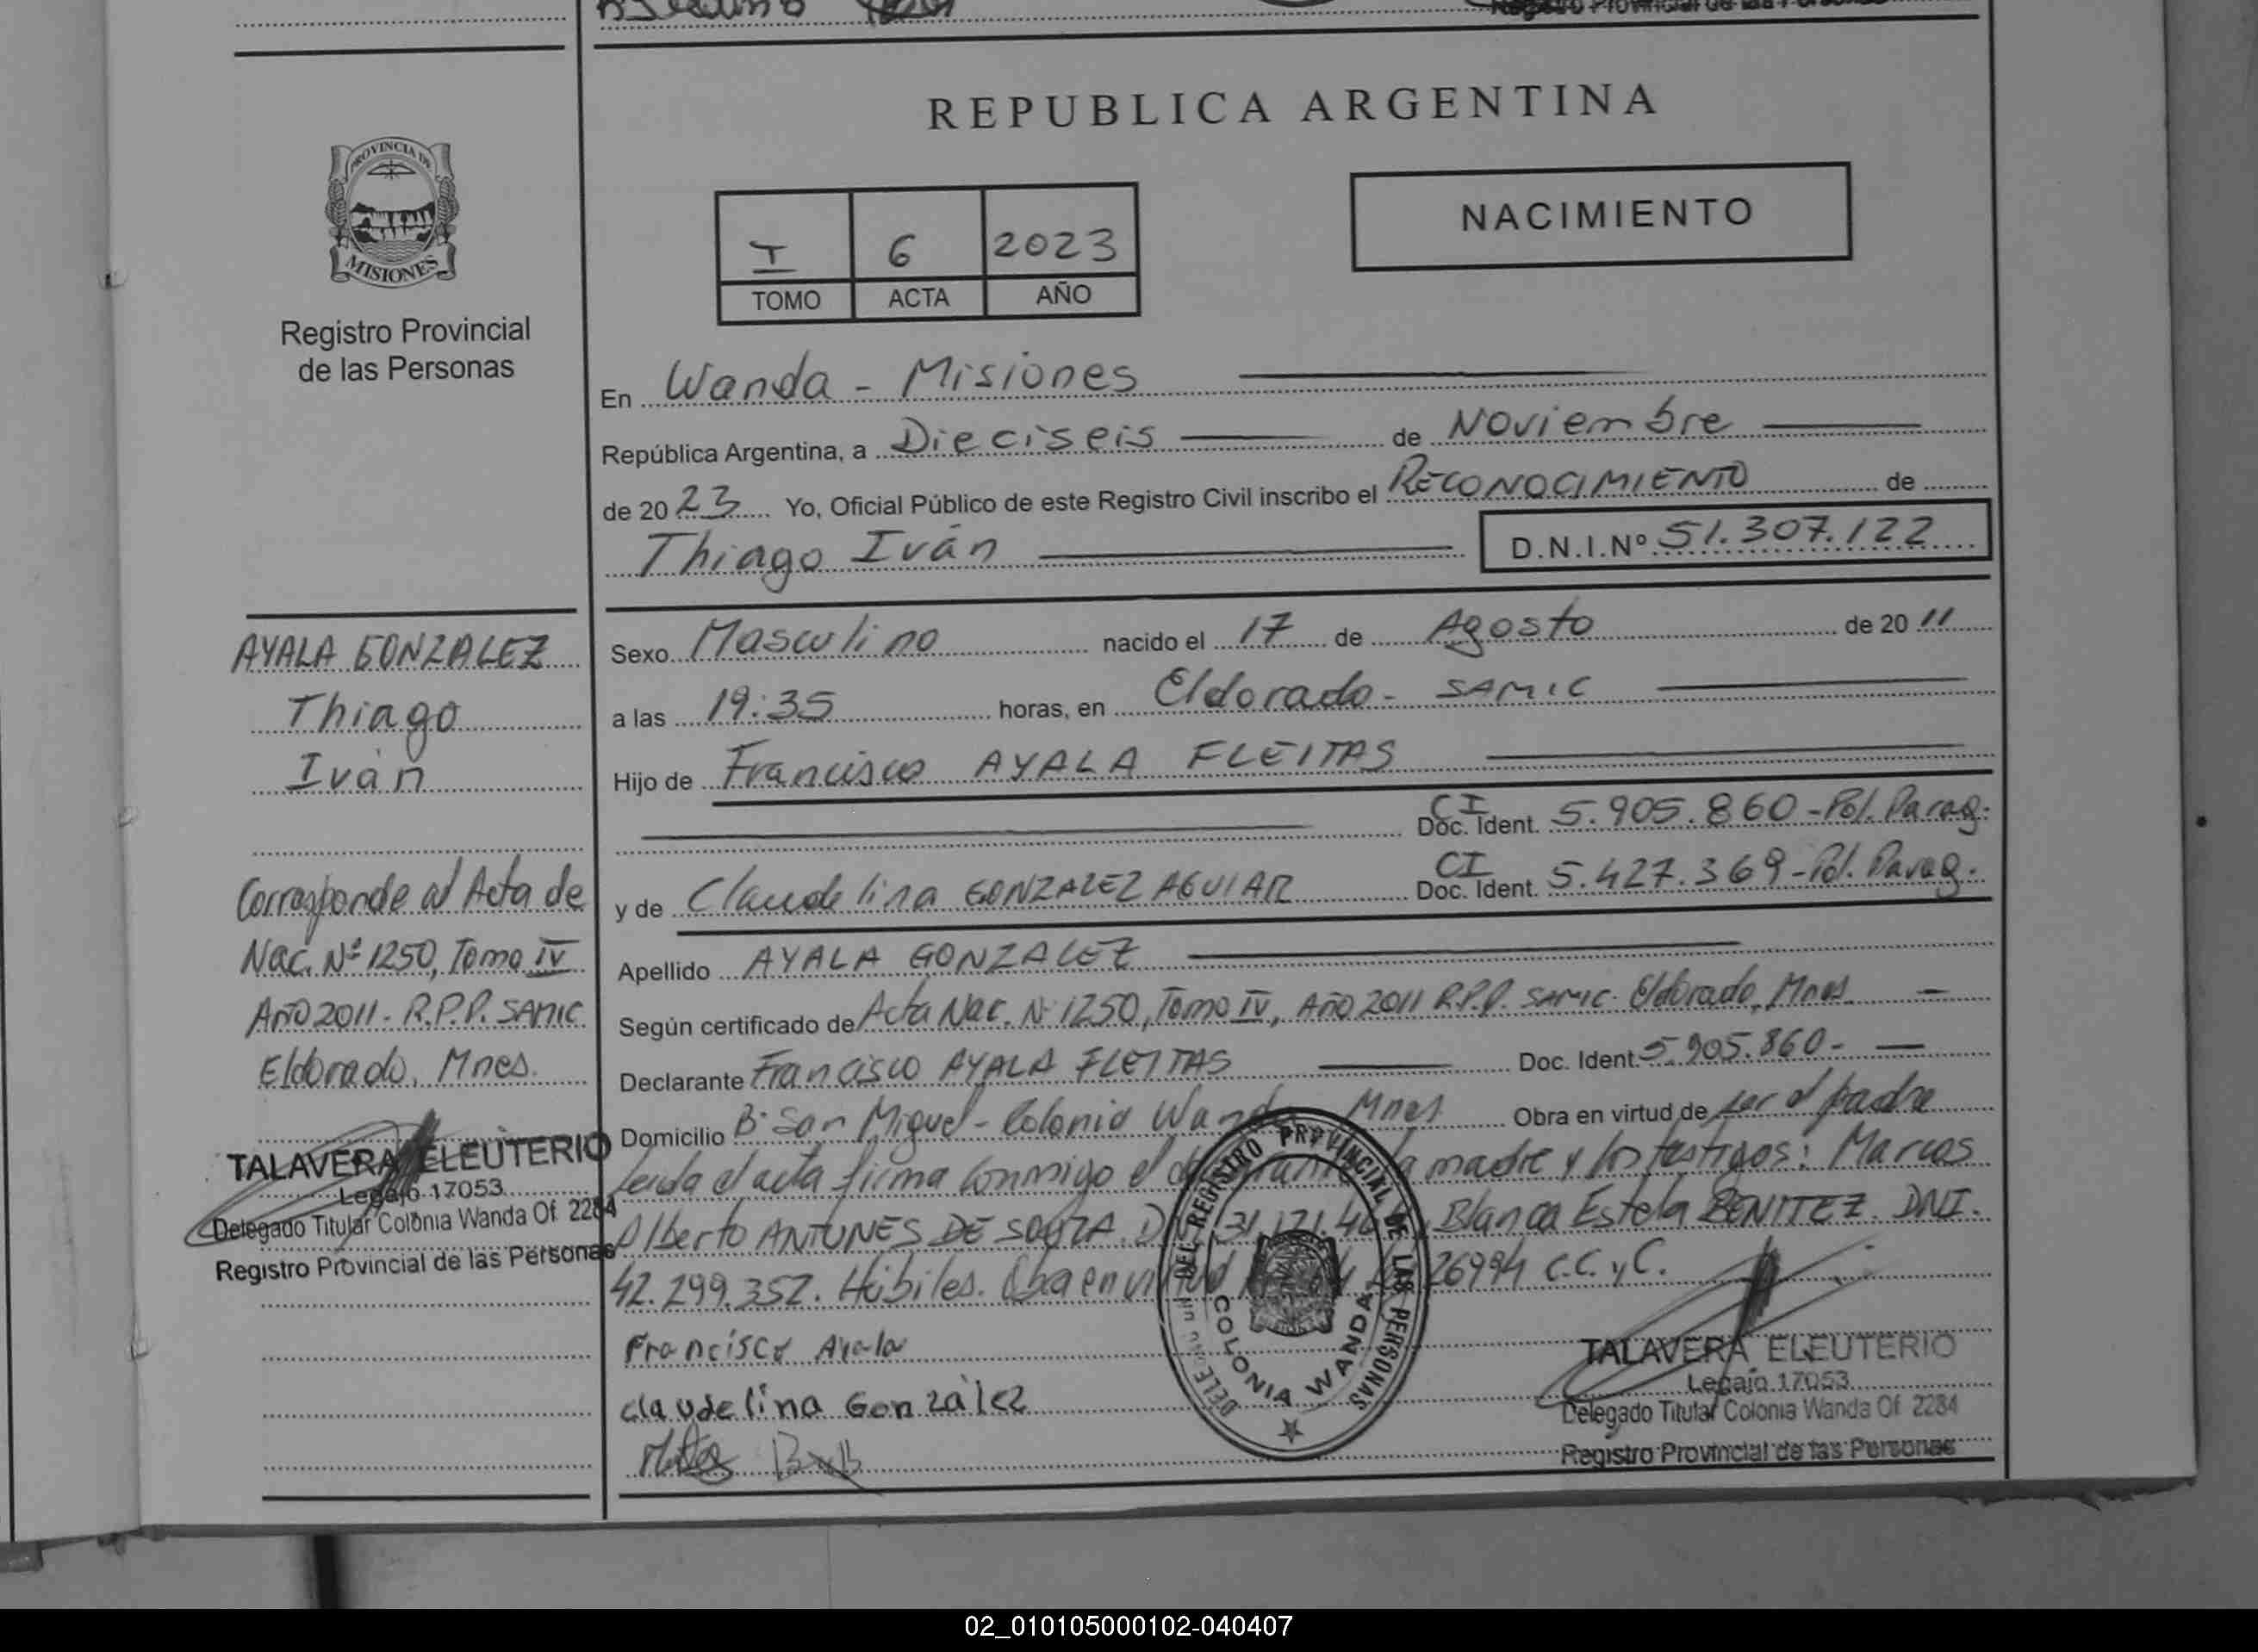 REPUBLICA ARGENTINA
PROVINCIA DE
MISIONES
Registro Provincial
de las Personas
NACIMIENTO
I 6 2023
TOMO ACTA AÑO
En Wanda - Misiones
República Argentina, a Dieciseis de Noviembre
de 2023 Yo, Oficial Público de este Registro Civil inscribo el RECONOCIMIENTO de
Thiago Iván D.N.I.Nº 51.307.122
AYALA GONZALEZ
Thiago
Iván
Corresponde al Acta de
Nac. Nº 1250, Tomo IV
Año 2011 - R.P.P. SAMIC
Eldorado, Mnes.
TALAVERA ELEUTERIO
Legajo 17053
Delegado Titular Colonia Wanda Of. 2284
Registro Provincial de las Personas
Sexo Masculino nacido el 17 de Agosto de 2011
a las 19:35 horas, en Eldorado - SAMIC
Hijo de Francisco AYALA FLEITAS
CI
Doc. Ident. 5.905.860 - Pol. Parag.
CI
y de Claudelina GONZALEZ AGUIAR Doc. Ident. 5.427.369 - Pol. Parag.
Apellido AYALA GONZALEZ
Según certificado de Acta Nac. Nº 1250, Tomo IV, Año 2011 R.P.P. SAMIC. Eldorado, Mnes.
Declarante Francisco AYALA FLEITAS Doc. Ident. 5.905.860-
Domicilio Bº San Miguel - Colonia Wanda Mnes Obra en virtud de ser el padre
Leida el acta firma conmigo el declarante la madre y los testigos: Marcos
Alberto ANTUNES DE SOUZA. DNI 31.171. Blanca Estela BENITEZ. DNI.
42.299.352. Hábiles. Obra en virtud 26994 C.C. y C.
Francisco Ayala
claudelina González
DEL REGISTRO PROVINCIAL DE LAS PERSONAS
COLONIA WANDA
TALAVERA ELEUTERIO
Legajo 17053
Delegado Titular Colonia Wanda Of. 2284
Registro Provincial de las Personas
02_010105000102-040407